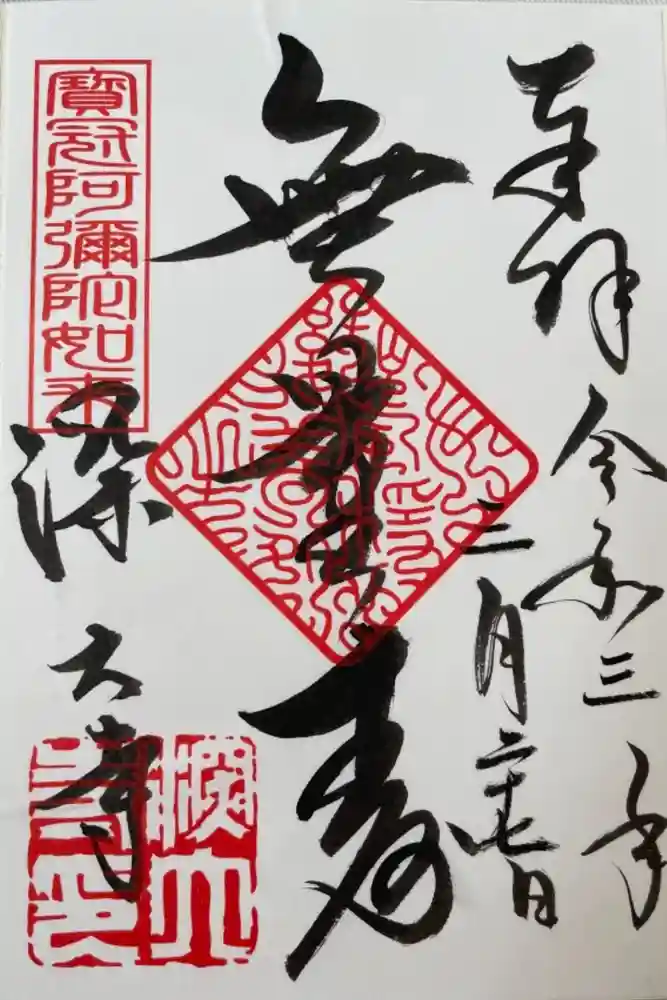 奉拝 令和三年
三月二十七日
無量寿
寶冠阿彌陀如来
深大寺
深大
寺印